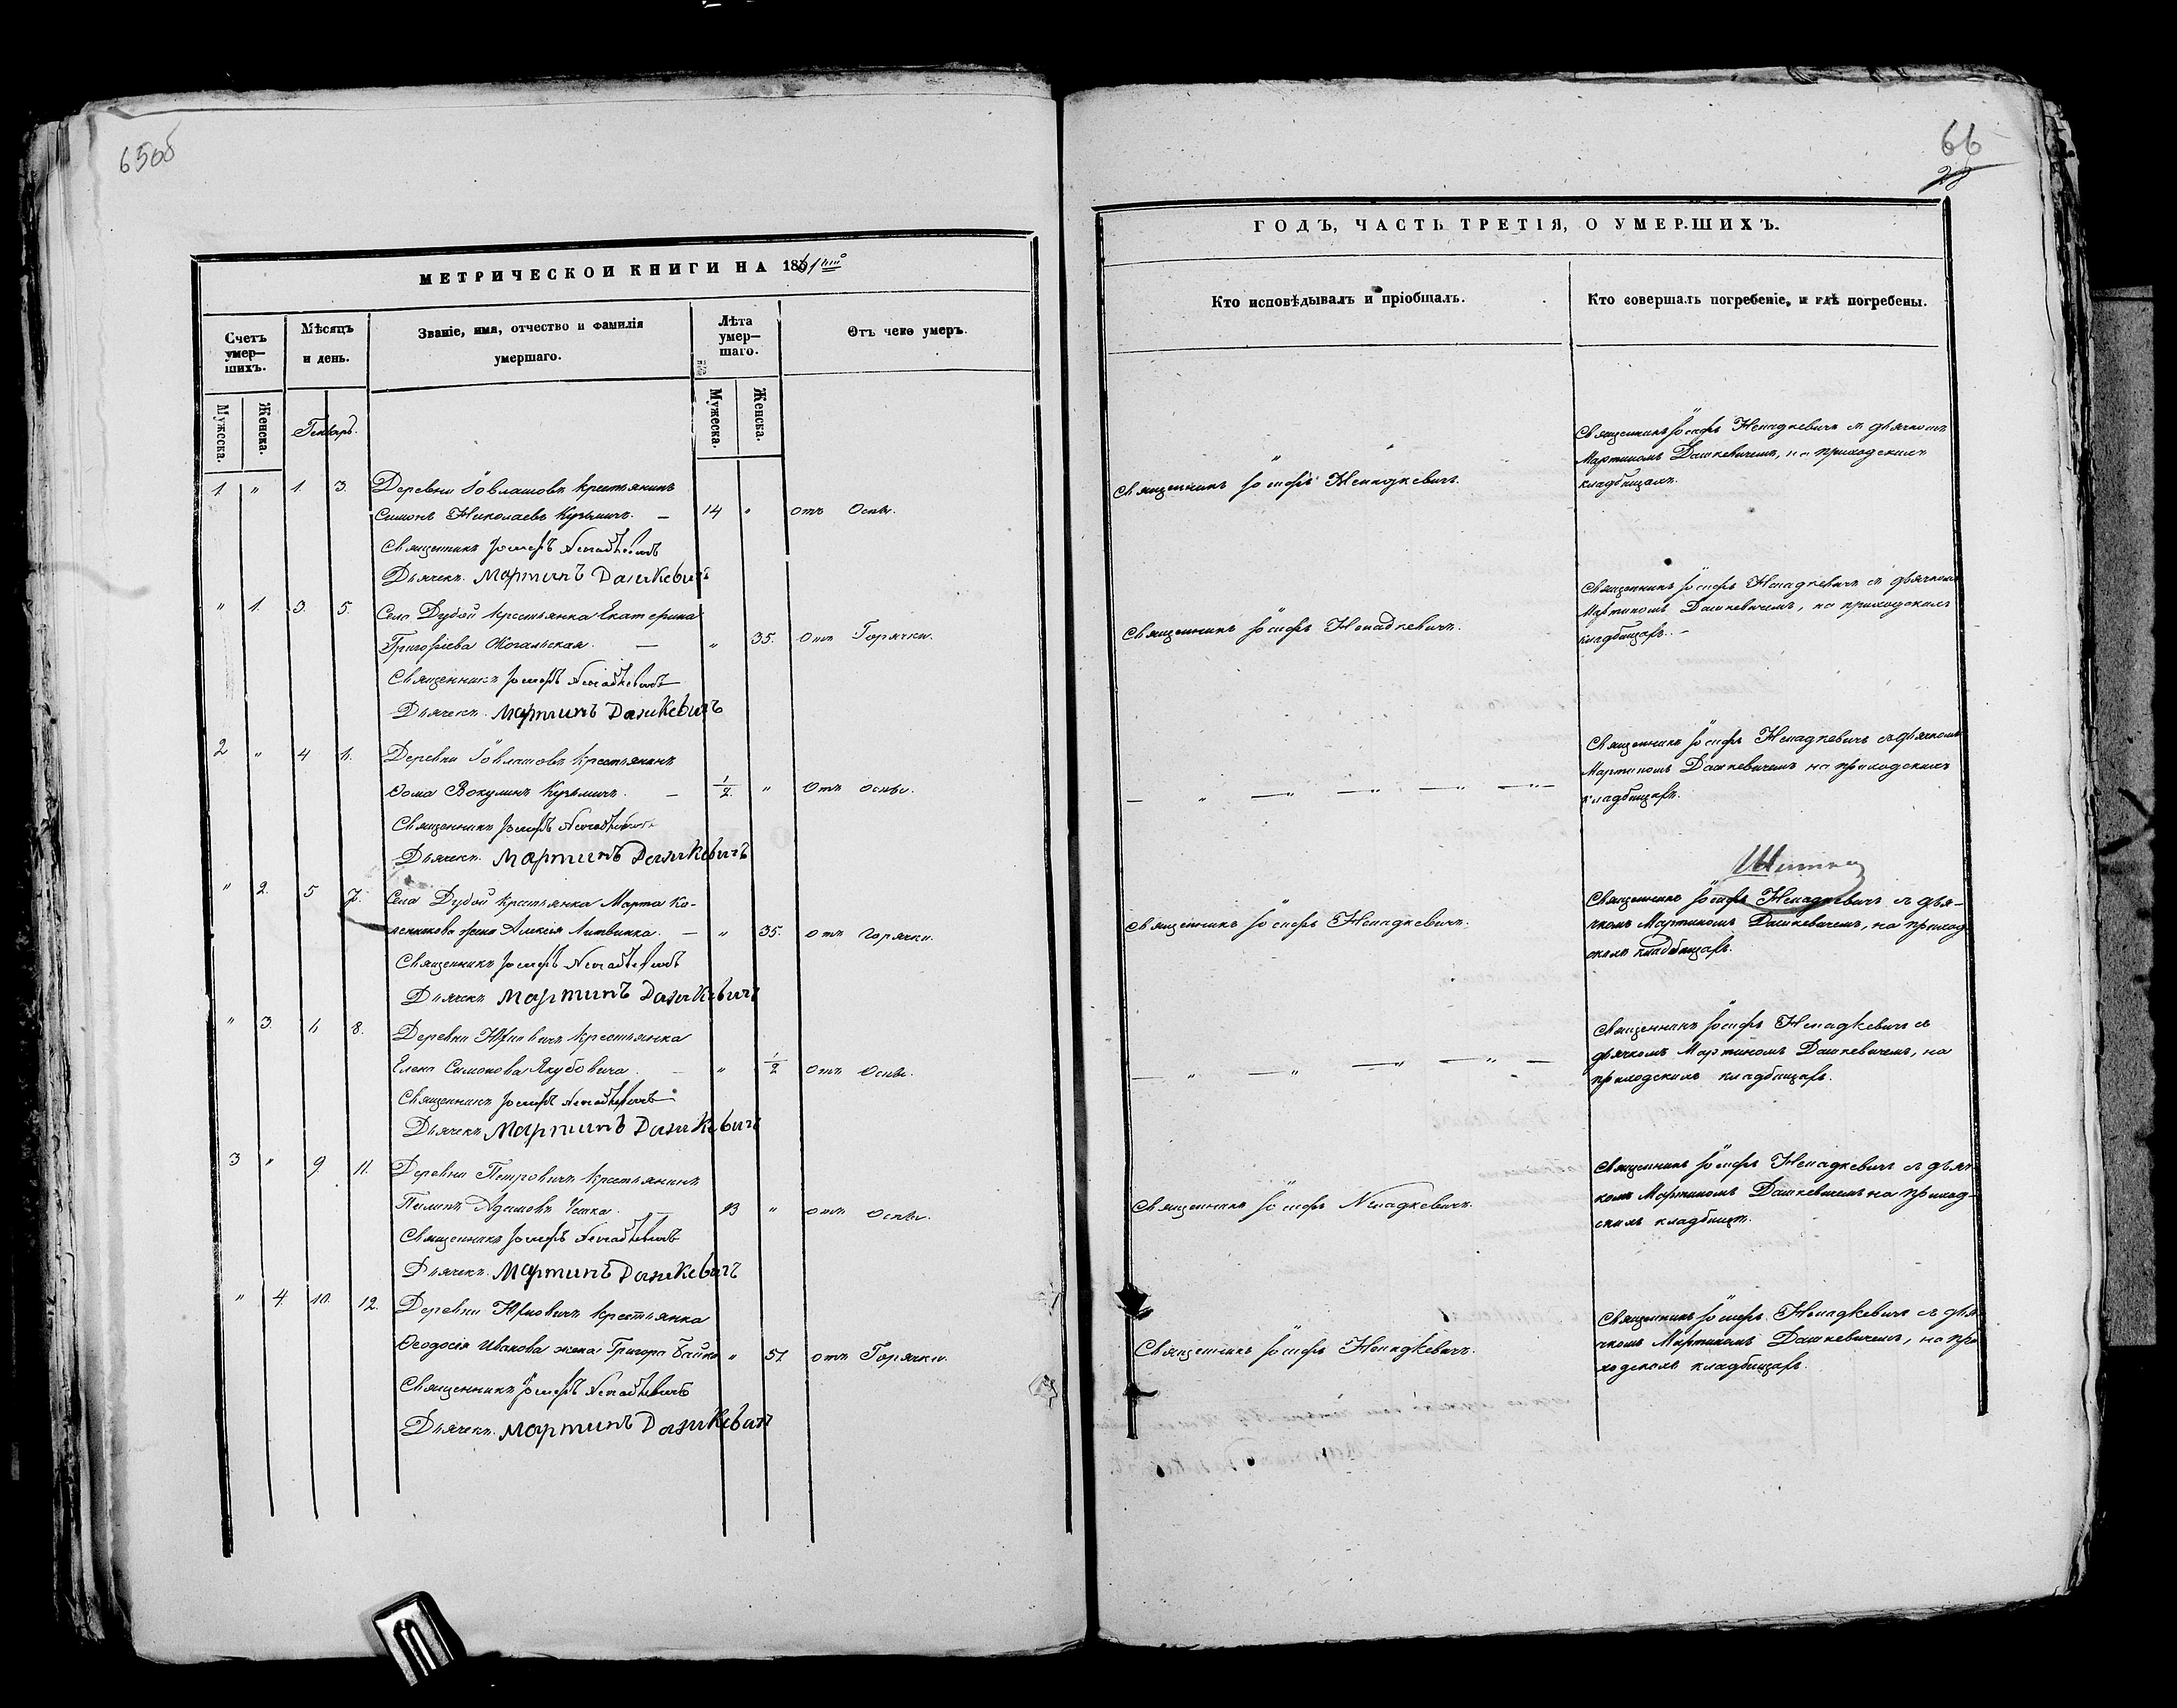 65об
МЕТРИЧЕСКОЙ КНИГИ НА 1861й
Счетъ умер-шихъ.
Мѣсяцъ и день.
Званіе, имя, отчество и фамилія умершаго.
Лѣта умер-шаго.
Отъ чего умеръ.
Мужеска.
Женска.
Генварь.
Мужеска.
Женска.
1. " 1. 3. Деревни Іовлашовъ крестьянинъ
Симонъ Николаевъ Кузьмичъ. — 14 " отъ Оспы.
Священникъ Іосифъ Ненадкевичъ
Дьячекъ Мартинъ Дашкевичъ
" 1. 3. 5. Села Дубой крестьянка Екатерина
Григорьева — " 35. Отъ Горячки.
Священникъ Іосифъ Ненадкевичъ
Дьячекъ Мартинъ Дашкевичъ
2 " 4 Деревни Іовлашовъ крестьянинъ
Ѳома Вокулинъ Кузьмичъ. — 1/2. " Отъ оспы.
Священникъ Іосифъ Ненадкевичъ
Дьячекъ Мартинъ Дашкевичъ
" 2. 5 7. Села Дубой крестьянка Марта Ка-
жена Алексія Литвинка. — " 35. отъ горячки.
Священникъ Іосифъ Ненадкевичъ
Дьячекъ Мартинъ Дашкевичъ
" 3. 8. Деревни крестьянка
Елена Симонова Якубовича. — " 1/2 отъ Оспы.
Священникъ Іосифъ Ненадкевичъ
Дьячекъ Мартинъ Дашкевичъ
3 " 9. 11. Деревни Петровичъ крестьянинъ
Адамовъ " отъ Оспы.
Священникъ Іосифъ Ненадкевичъ
Дьячекъ Мартинъ Дашкевичъ
" 4. 10. 12. Деревни крестьянка
Ѳеодосія Иванова жена Григора " 57. отъ Горячки.
Священникъ Іосифъ Ненадкевичъ
Дьячекъ Мартинъ Дашкевичъ
66
ГОДЪ, ЧАСТЬ ТРЕТІЯ, О УМЕРШИХЪ.
Кто исповѣдывалъ и пріобщалъ.
Кто совершалъ погребеніе, и гдѣ погребены.
Священникъ Іосифъ Ненадкевичъ.
Священникъ Іосифъ Ненадкевичъ съ дьячкомъ
Мартиномъ Дашкевичемъ, на приходскихъ
кладбищахъ.
Священникъ Іосифъ Ненадкевичъ.
Священникъ Іосифъ Ненадкевичъ съ дьячкомъ
Мартиномъ Дашкевичемъ, на приходскихъ
кладбищахъ. –
— " — " — " — " —
Священникъ Іосифъ Ненадкевичъ съ дьячкомъ
Мартиномъ Дашкевичемъ на приходскихъ
кладбищахъ.
Священникъ Іосифъ Ненадкевичъ.
Священникъ Іосифъ Ненадкевичъ съ дья-
чкомъ Мартиномъ Дашкевичемъ, на приход
скихъ кладбищахъ.
— " — " — " — " —
Священникъ Іосифъ Ненадкевичъ съ
дьячкомъ Мартиномъ Дашкевичемъ, на
приходскихъ кладбищахъ.
Священникъ Іосифъ Ненадкевичъ.
Священникъ Іосифъ Ненадкевичъ съ дьяч
комъ Мартиномъ Дашкевичемъ на приход-
скихъ кладбищахъ.
Священникъ Іосифъ Ненадкевичъ.
Священникъ Іосифъ Ненадкевичъ съ дья
чкомъ Мартиномъ Дашкевичемъ, на при
ходскихъ кладбищахъ.